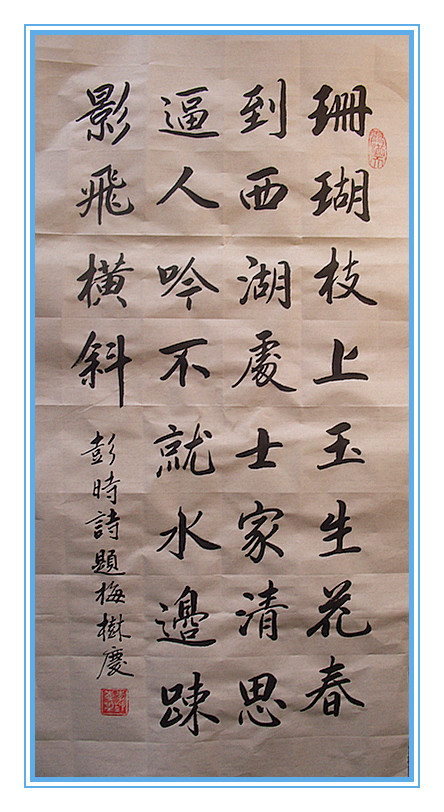 珊瑚枝上玉生花春
到西湖處士家清思
逼人吟不就水邊踈
影飛橫斜
彭時詩題梅樹慶